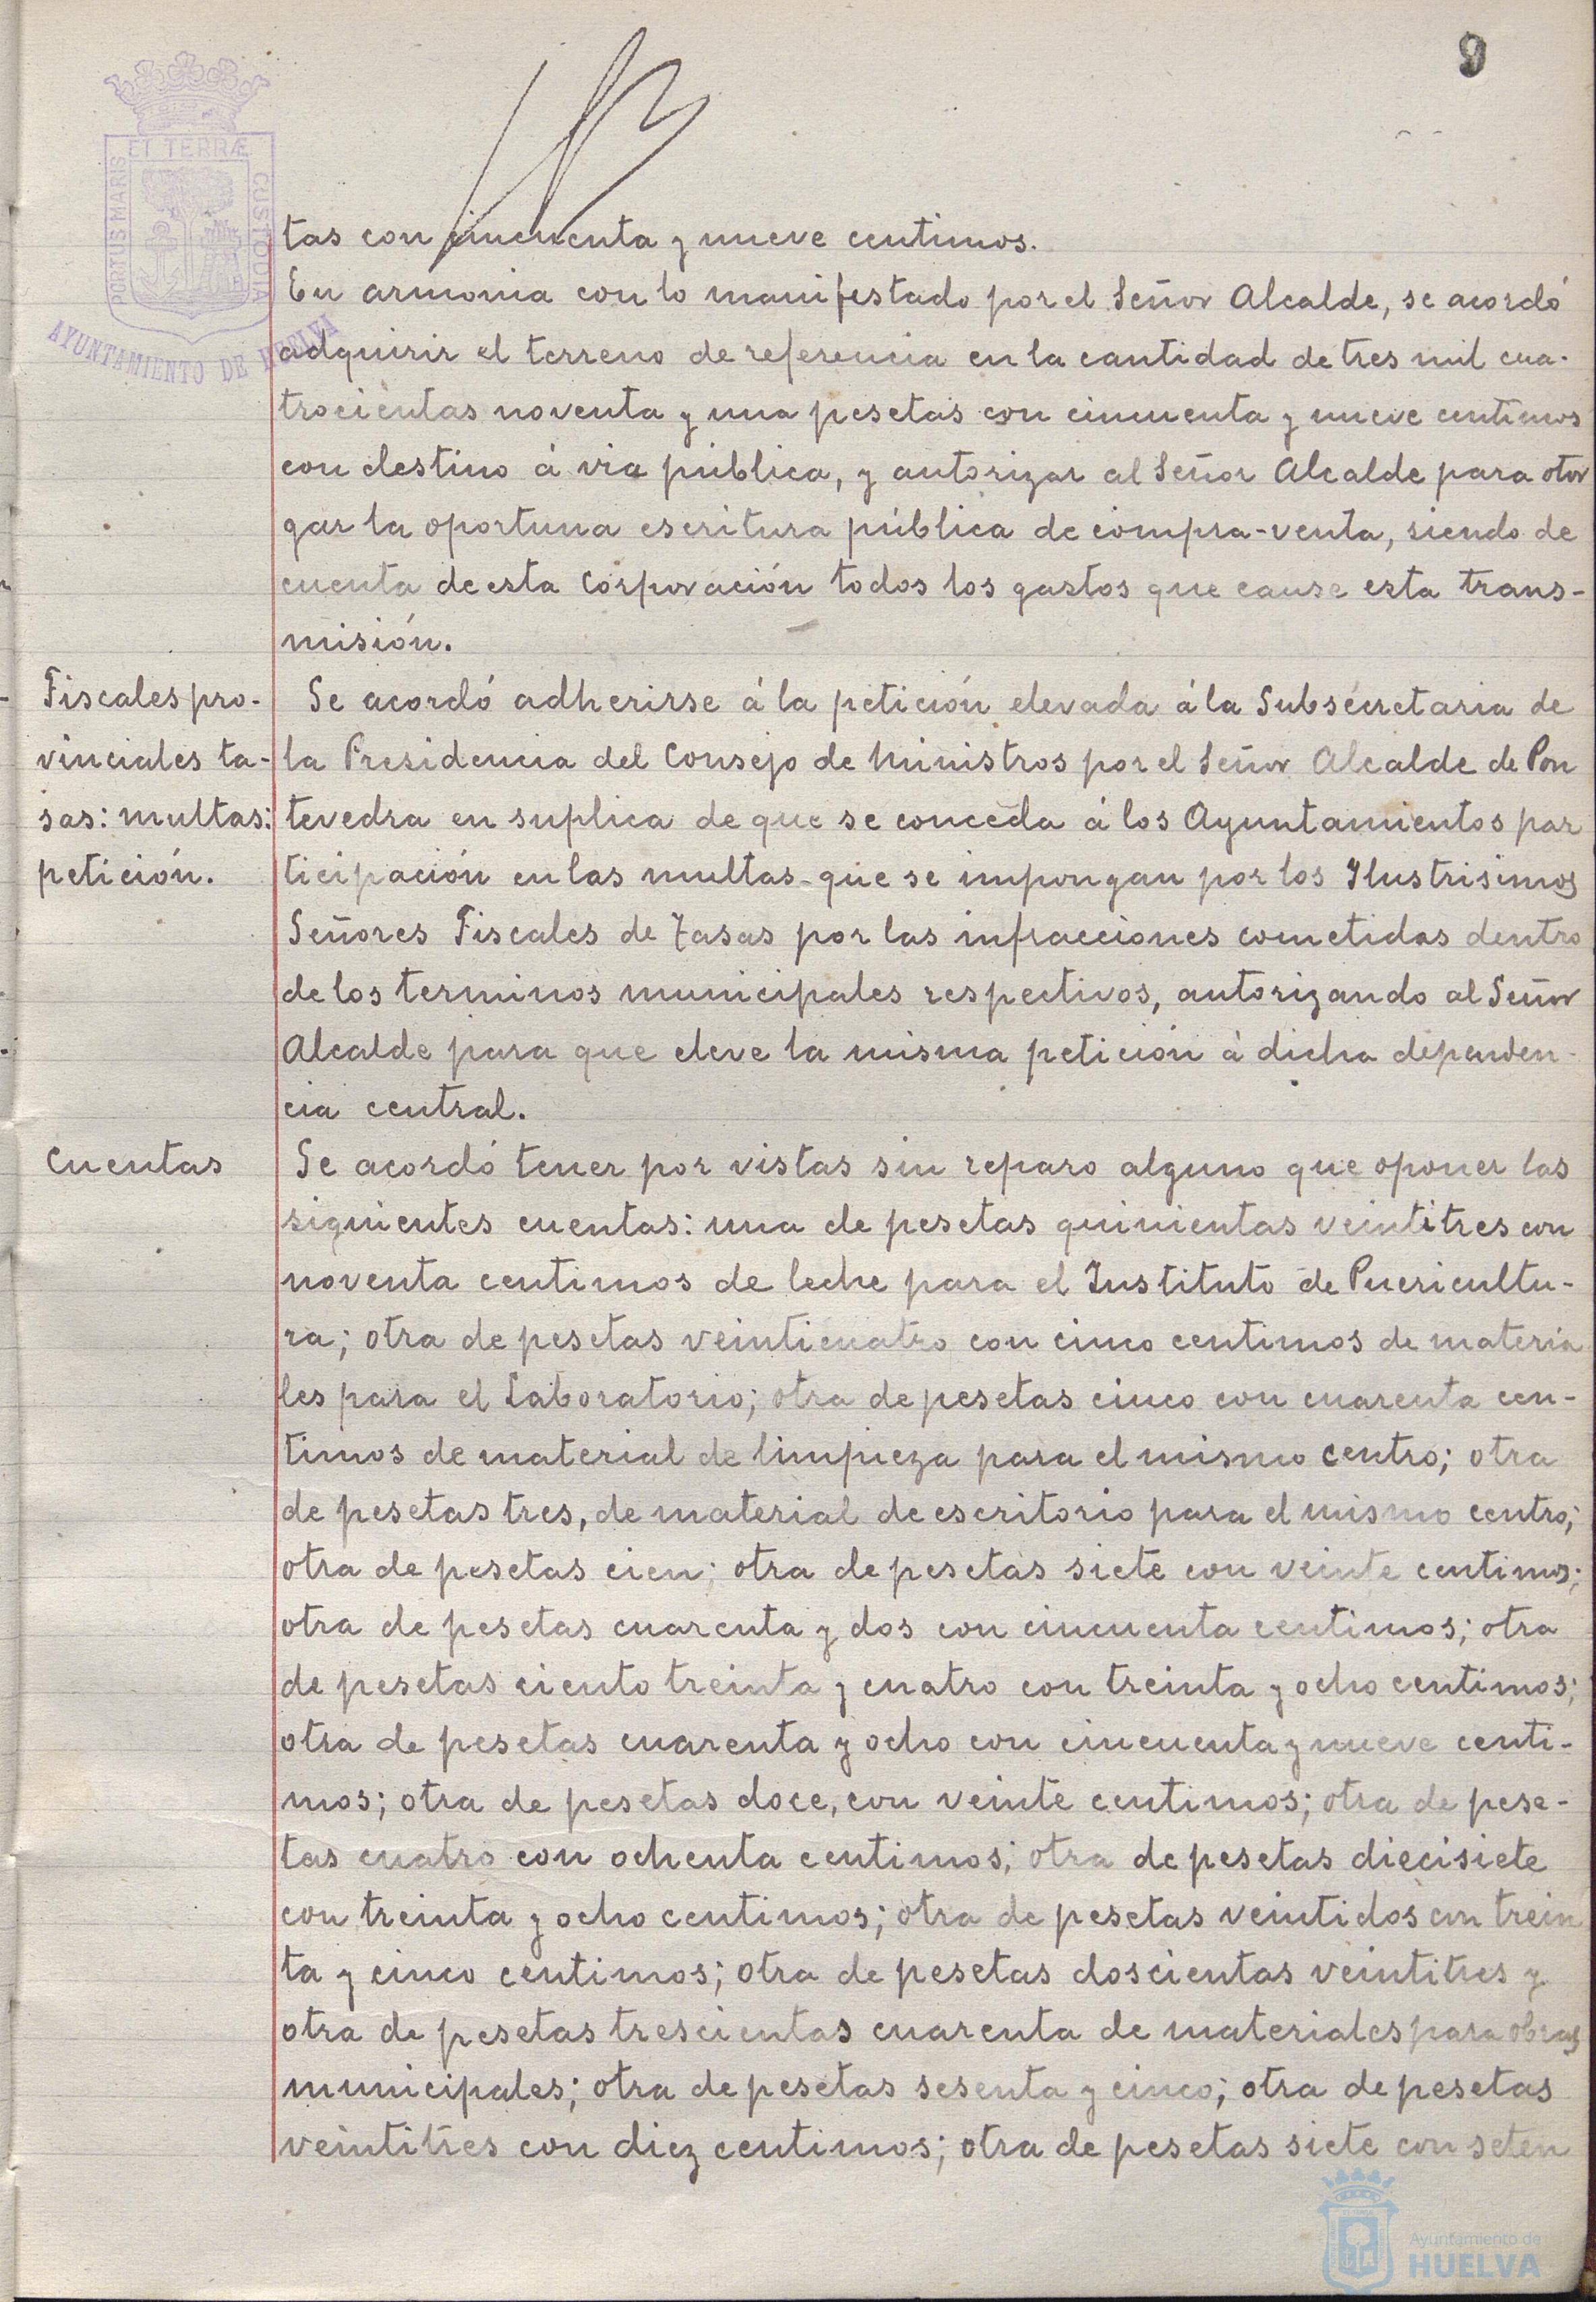 9
PORTUS MARIS ET TERRÆ CUSTODIA
AYUNTAMIENTO DE HUELVA
tas con cincuenta y nueve centimos.
En armonia con lo manifestado por el Señor Alcalde, se acordó
adquirir el terreno de referencia en la cantidad de tres mil cua-
trocientas noventa y una pesetas con cincuenta y nueve centimos
con destino á via pública, y autorizar al Señor Alcalde para otor
gar la oportuna escritura pública de compra-venta, siendo de
cuenta de esta Corporación todos los gastos que cause esta trans-
misión.
Fiscales pro-
vinciales ta-
sas: multas:
petición.
Se acordó adherirse á la petición elevada á la Subsecretaria de
la Presidencia del Consejo de Ministros por el Señor Alcalde de Pon
tevedra en suplica de que se conceda á los Ayuntamientos par
ticipación en las multas que se impongan por los Ilustrisimos
Señores Fiscales de Tasas por las infracciones cometidas dentro
de los terminos municipales respectivos, autorizando al Señor
Alcalde para que eleve la misma petición á dicha dependen-
cia central.
Cuentas
Se acordó tener por vistas sin reparo alguno que oponer las
siguientes cuentas: una de pesetas quinientas veintitres con
noventa centimos de leche para el Instituto de Puericultu-
ra; otra de pesetas veinticuatro con cinco centimos de materia
les para el Laboratorio; otra de pesetas cinco con cuarenta cen-
timos de material de limpieza para el mismo centro; otra
de pesetas tres, de material de escritorio para el mismo centro;
otra de pesetas cien; otra de pesetas siete con veinte centimos;
otra de pesetas cuarenta y dos con cincuenta centimos; otra
de pesetas ciento treinta y cuatro con treinta y ocho centimos;
otra de pesetas cuarenta y ocho con cincuenta y nueve centi-
mos; otra de pesetas doce, con veinte centimos; otra de pese-
tas cuatro con ochenta centimos; otra de pesetas diecisiete
con treinta y ocho centimos; otra de pesetas veintidos con trein
ta y cinco centimos; otra de pesetas doscientas veintitres y
otra de pesetas trescientas cuarenta de materiales para obras
municipales; otra de pesetas sesenta y cinco; otra de pesetas
veintitres con diez centimos; otra de pesetas siete con seten
Ayuntamiento de
HUELVA